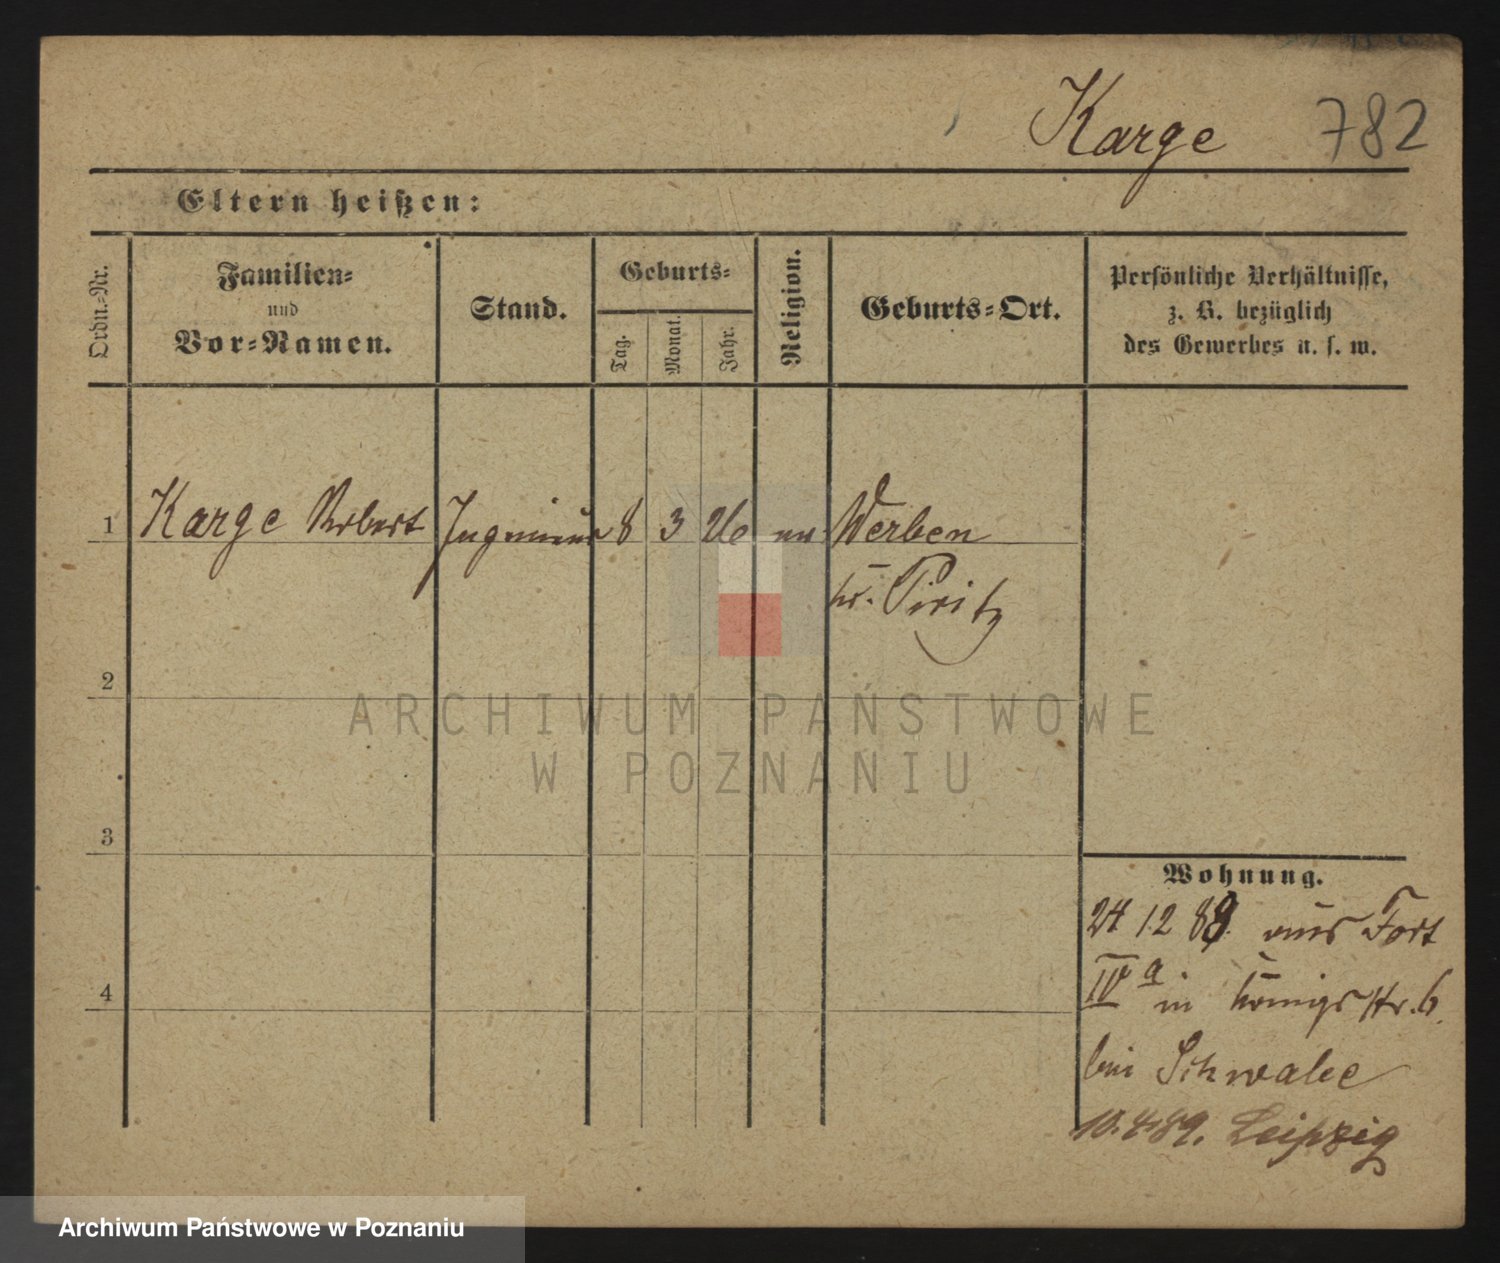 Karge 782
Eltern heißen:
Ordn.-Nr.
Familien-
und
Vor-Namen.
Stand.
Geburts-
Tag.
Monat.
Jahr.
Religion.
Geburts-Ort.
Persönliche Verhältnisse,
z. B. bezüglich
des Gewerbes u. s. w.
1 Karge Robert Ingenieur 8 3 26 Werben
kr. Piritz
2
ARCHIWUM PAŃSTWOWE
W POZNANIU
3
Wohnung.
24 12 88 aus Fort
IV a in Königsstr. 6.
4
bei Schwabe
10.4.89. Leipzig
Archiwum Państwowe w Poznaniu